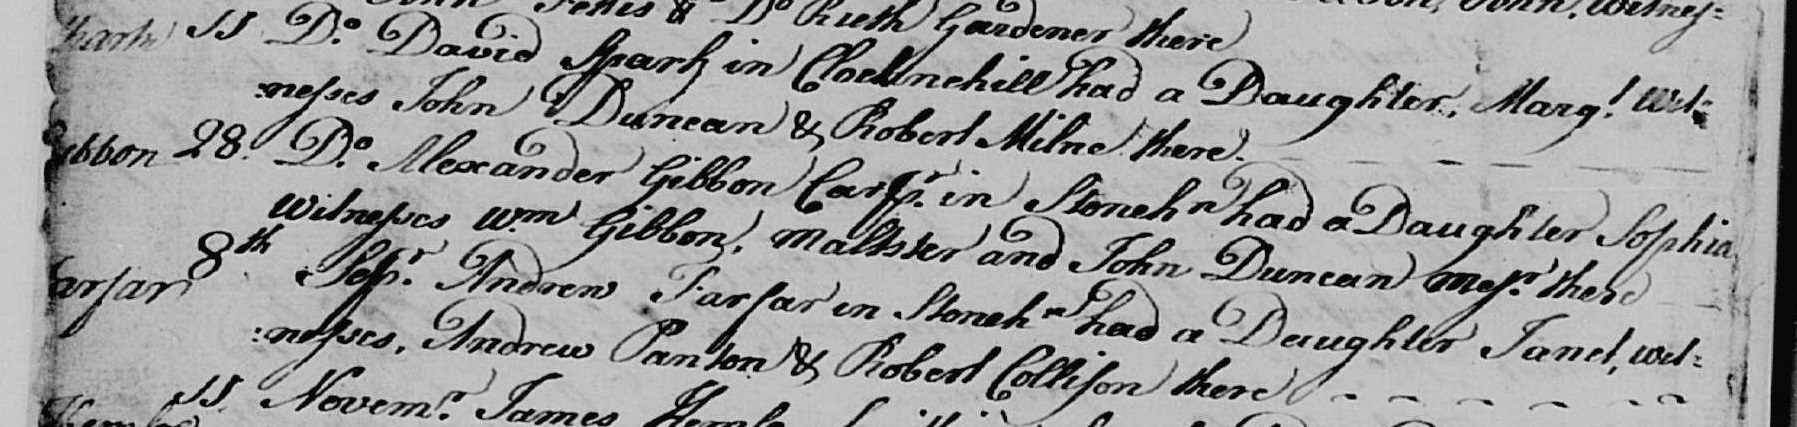 Fettes & Do Rueth Gardener there
11 Do. David Spark in Clochnehill had a Daughter, Margt. Wit=
:nesses John Duncan & Robert Milne there.
Gibbon 28. Do. Alexander Gibbon Carpr. in Stonehn had a Daughter Sophia
Witnesses Wm Gibbon, Maltster and John Duncan Messr. there
Farfar 8th Sepr. Andrew Farfar in Stonehn had a Daughter Janet, wit=
:nesses, Andrew Panton & Robert Collison there
11 Novemr. James